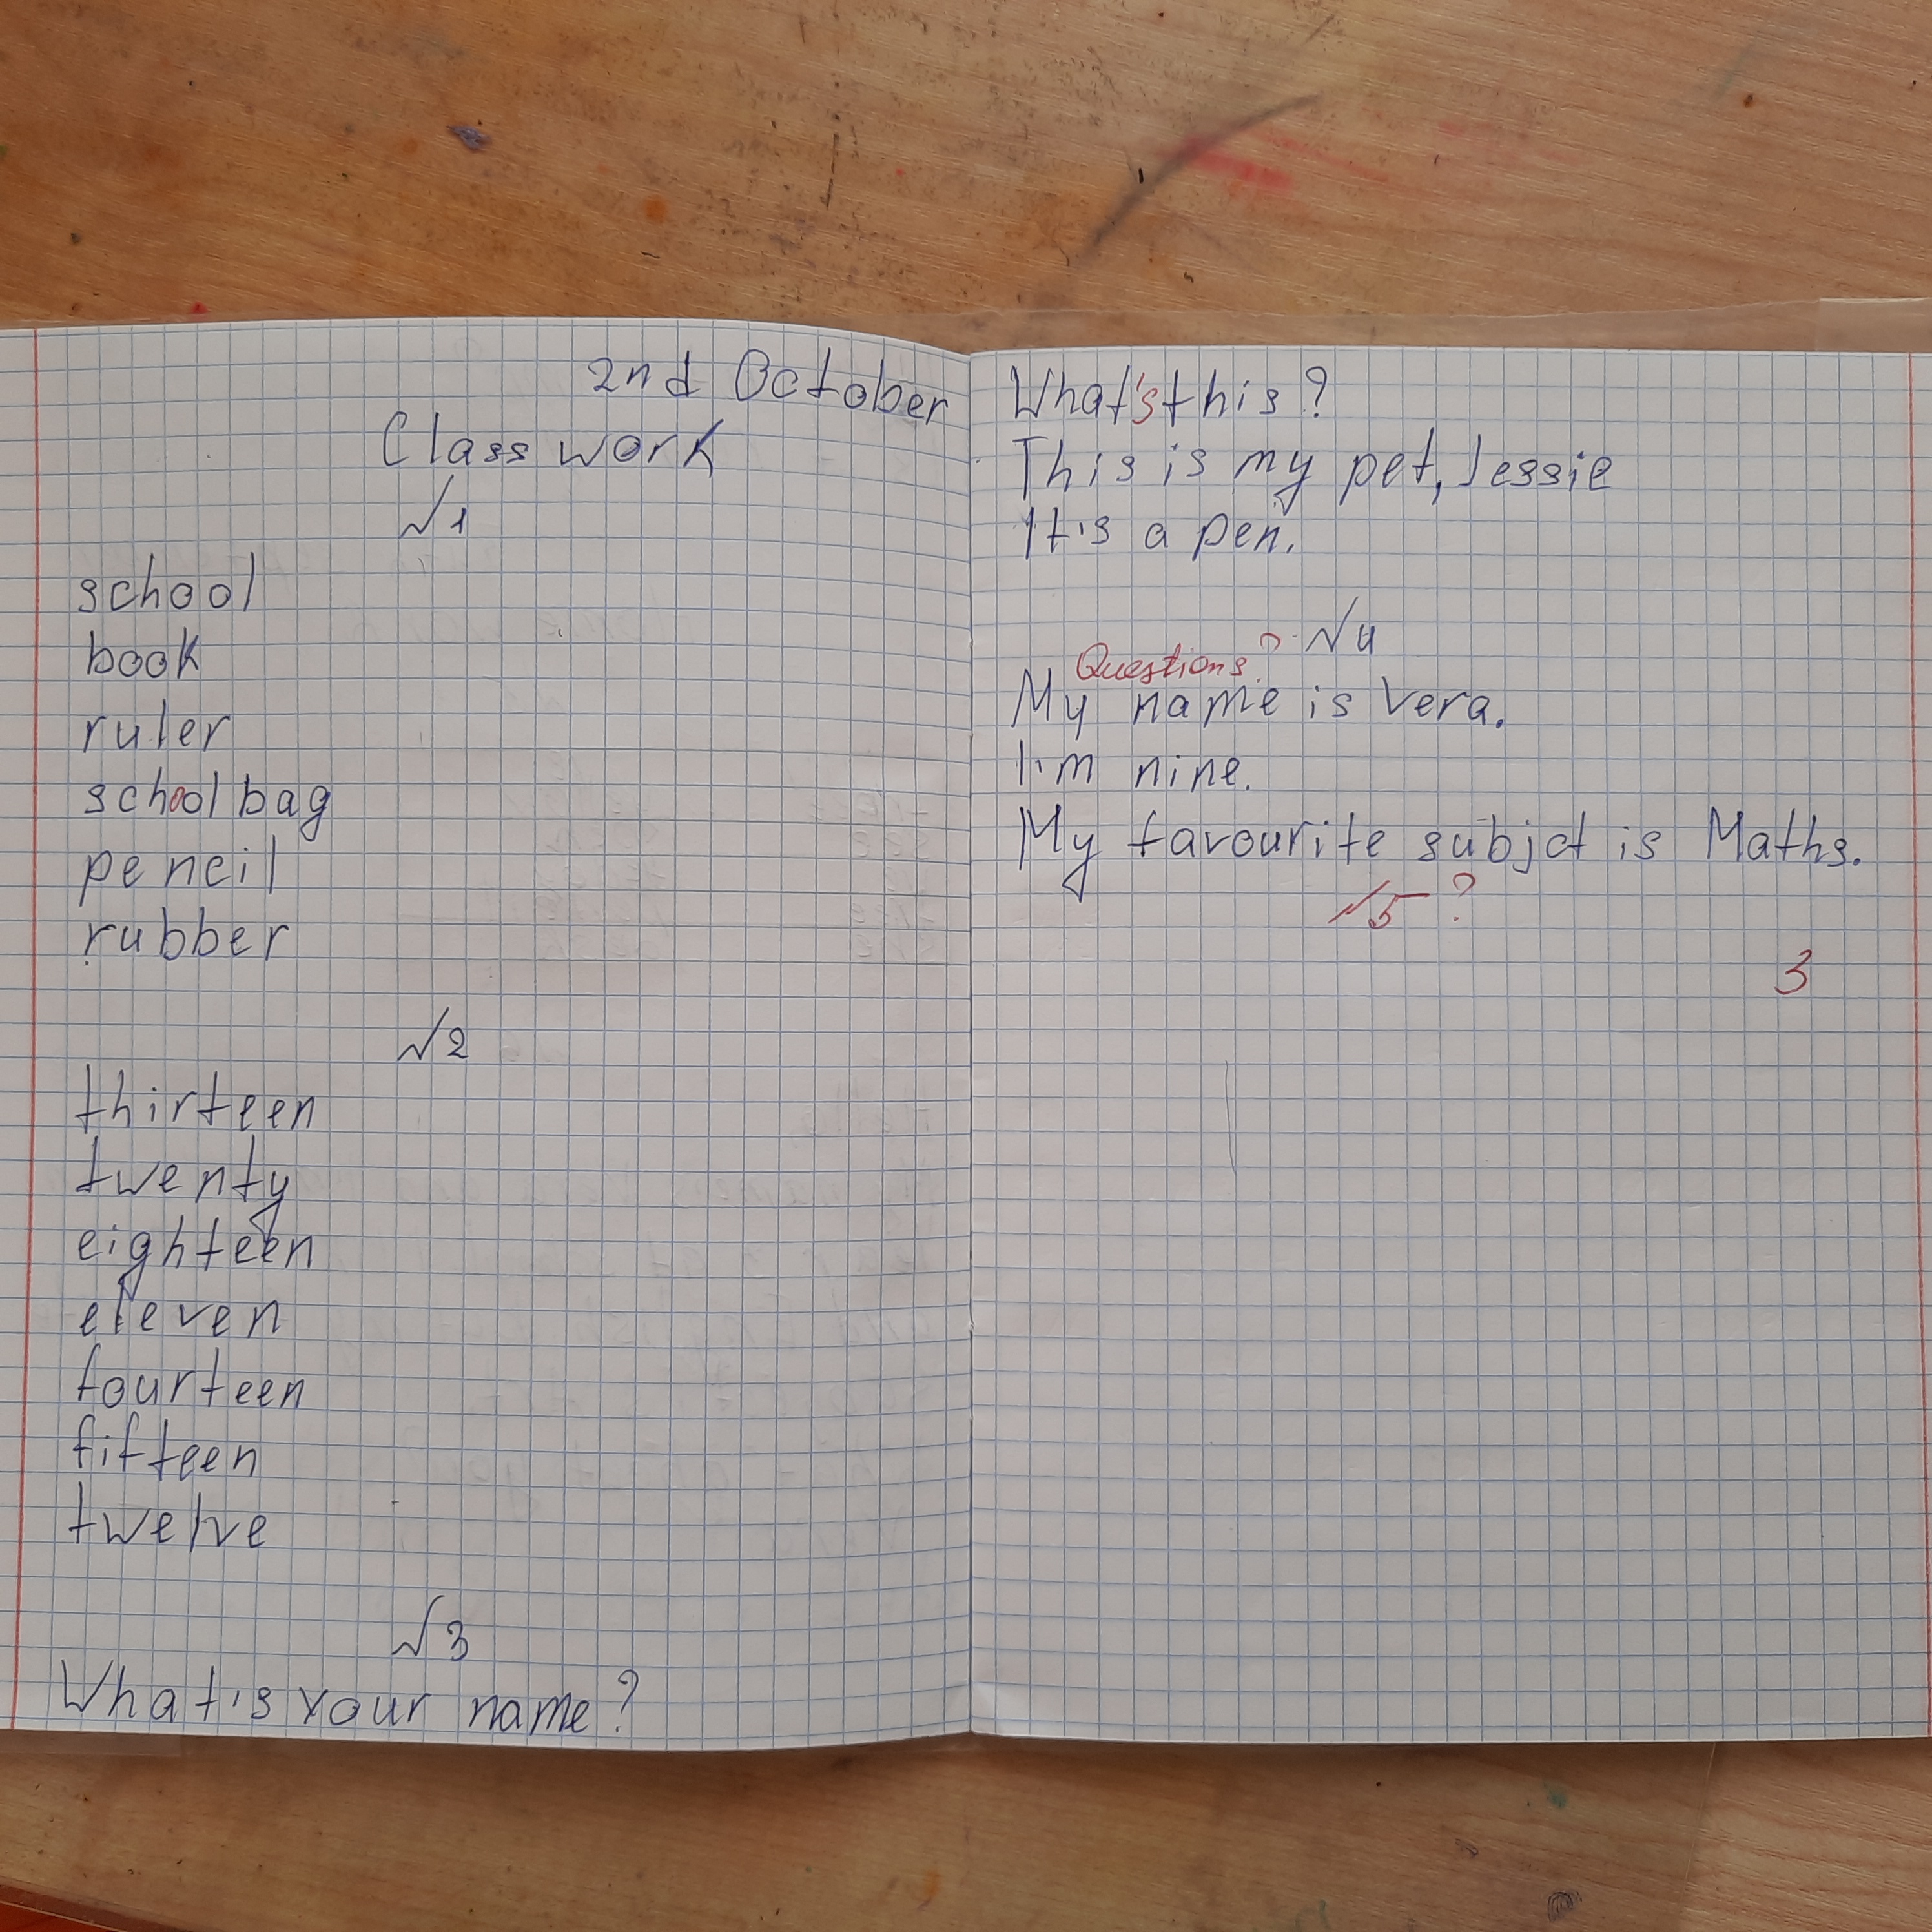 2nd October
Class work
№1
school
book
ruler
schoolbag
pencil
rubber
№2
thirteen
twenty
eighteen
eleven
fourteen
fifteen
twelve
№3
What's your name?
What's this?
This is my pet, Jessie
It's a pen.
№4
Questions?
My name is Vera.
I'm nine.
My favourite subjct is Maths.
№5 ?
3